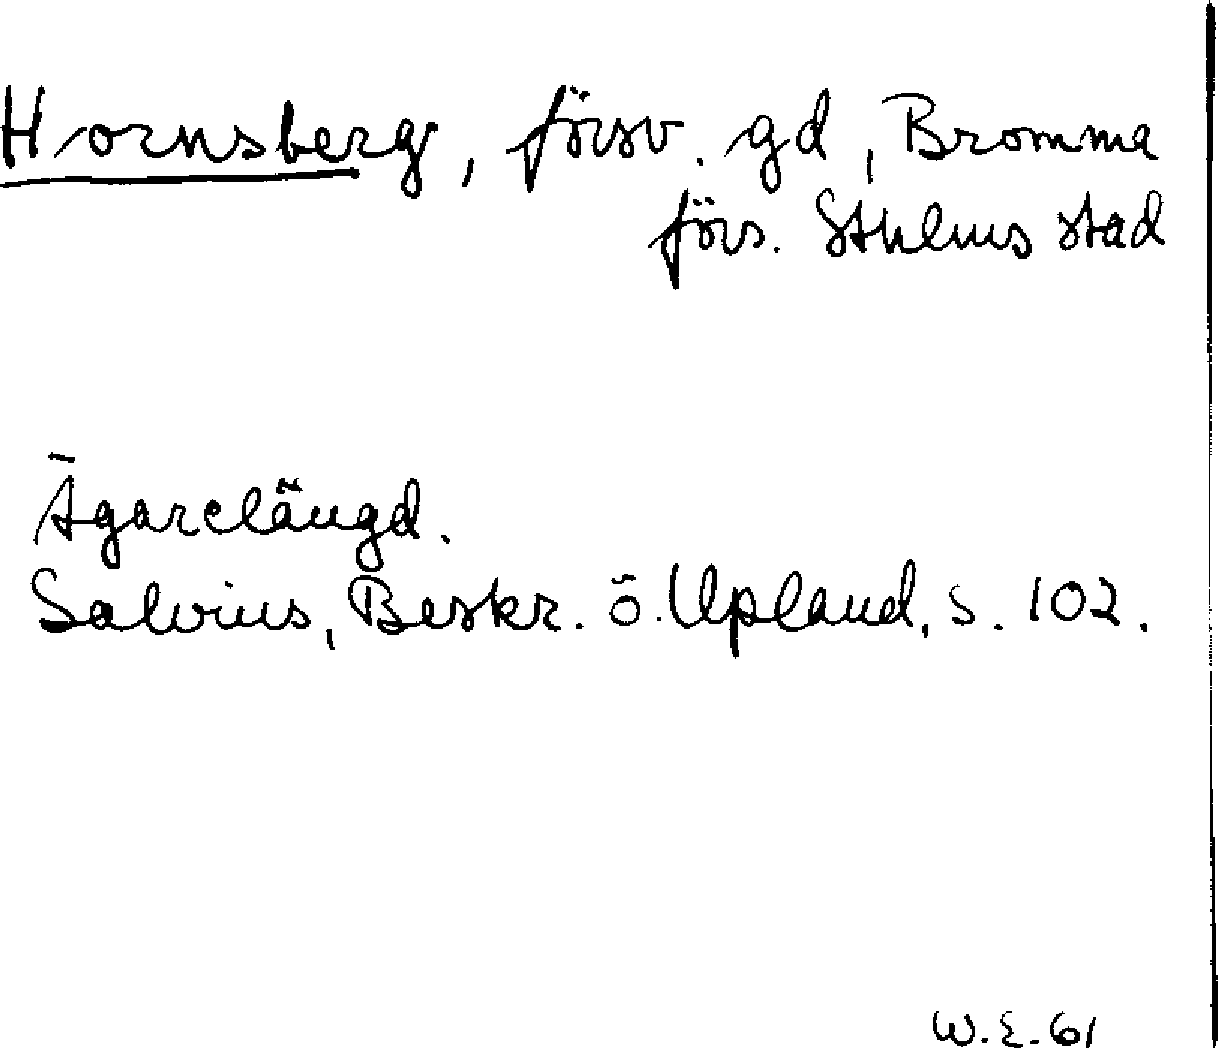 Hornsberg, försv. gd, Bromma
förs. Sthlms stad
Ägarelängd.
Salvius, Beskr. ö. Upland, s. 102.
W.E. 61